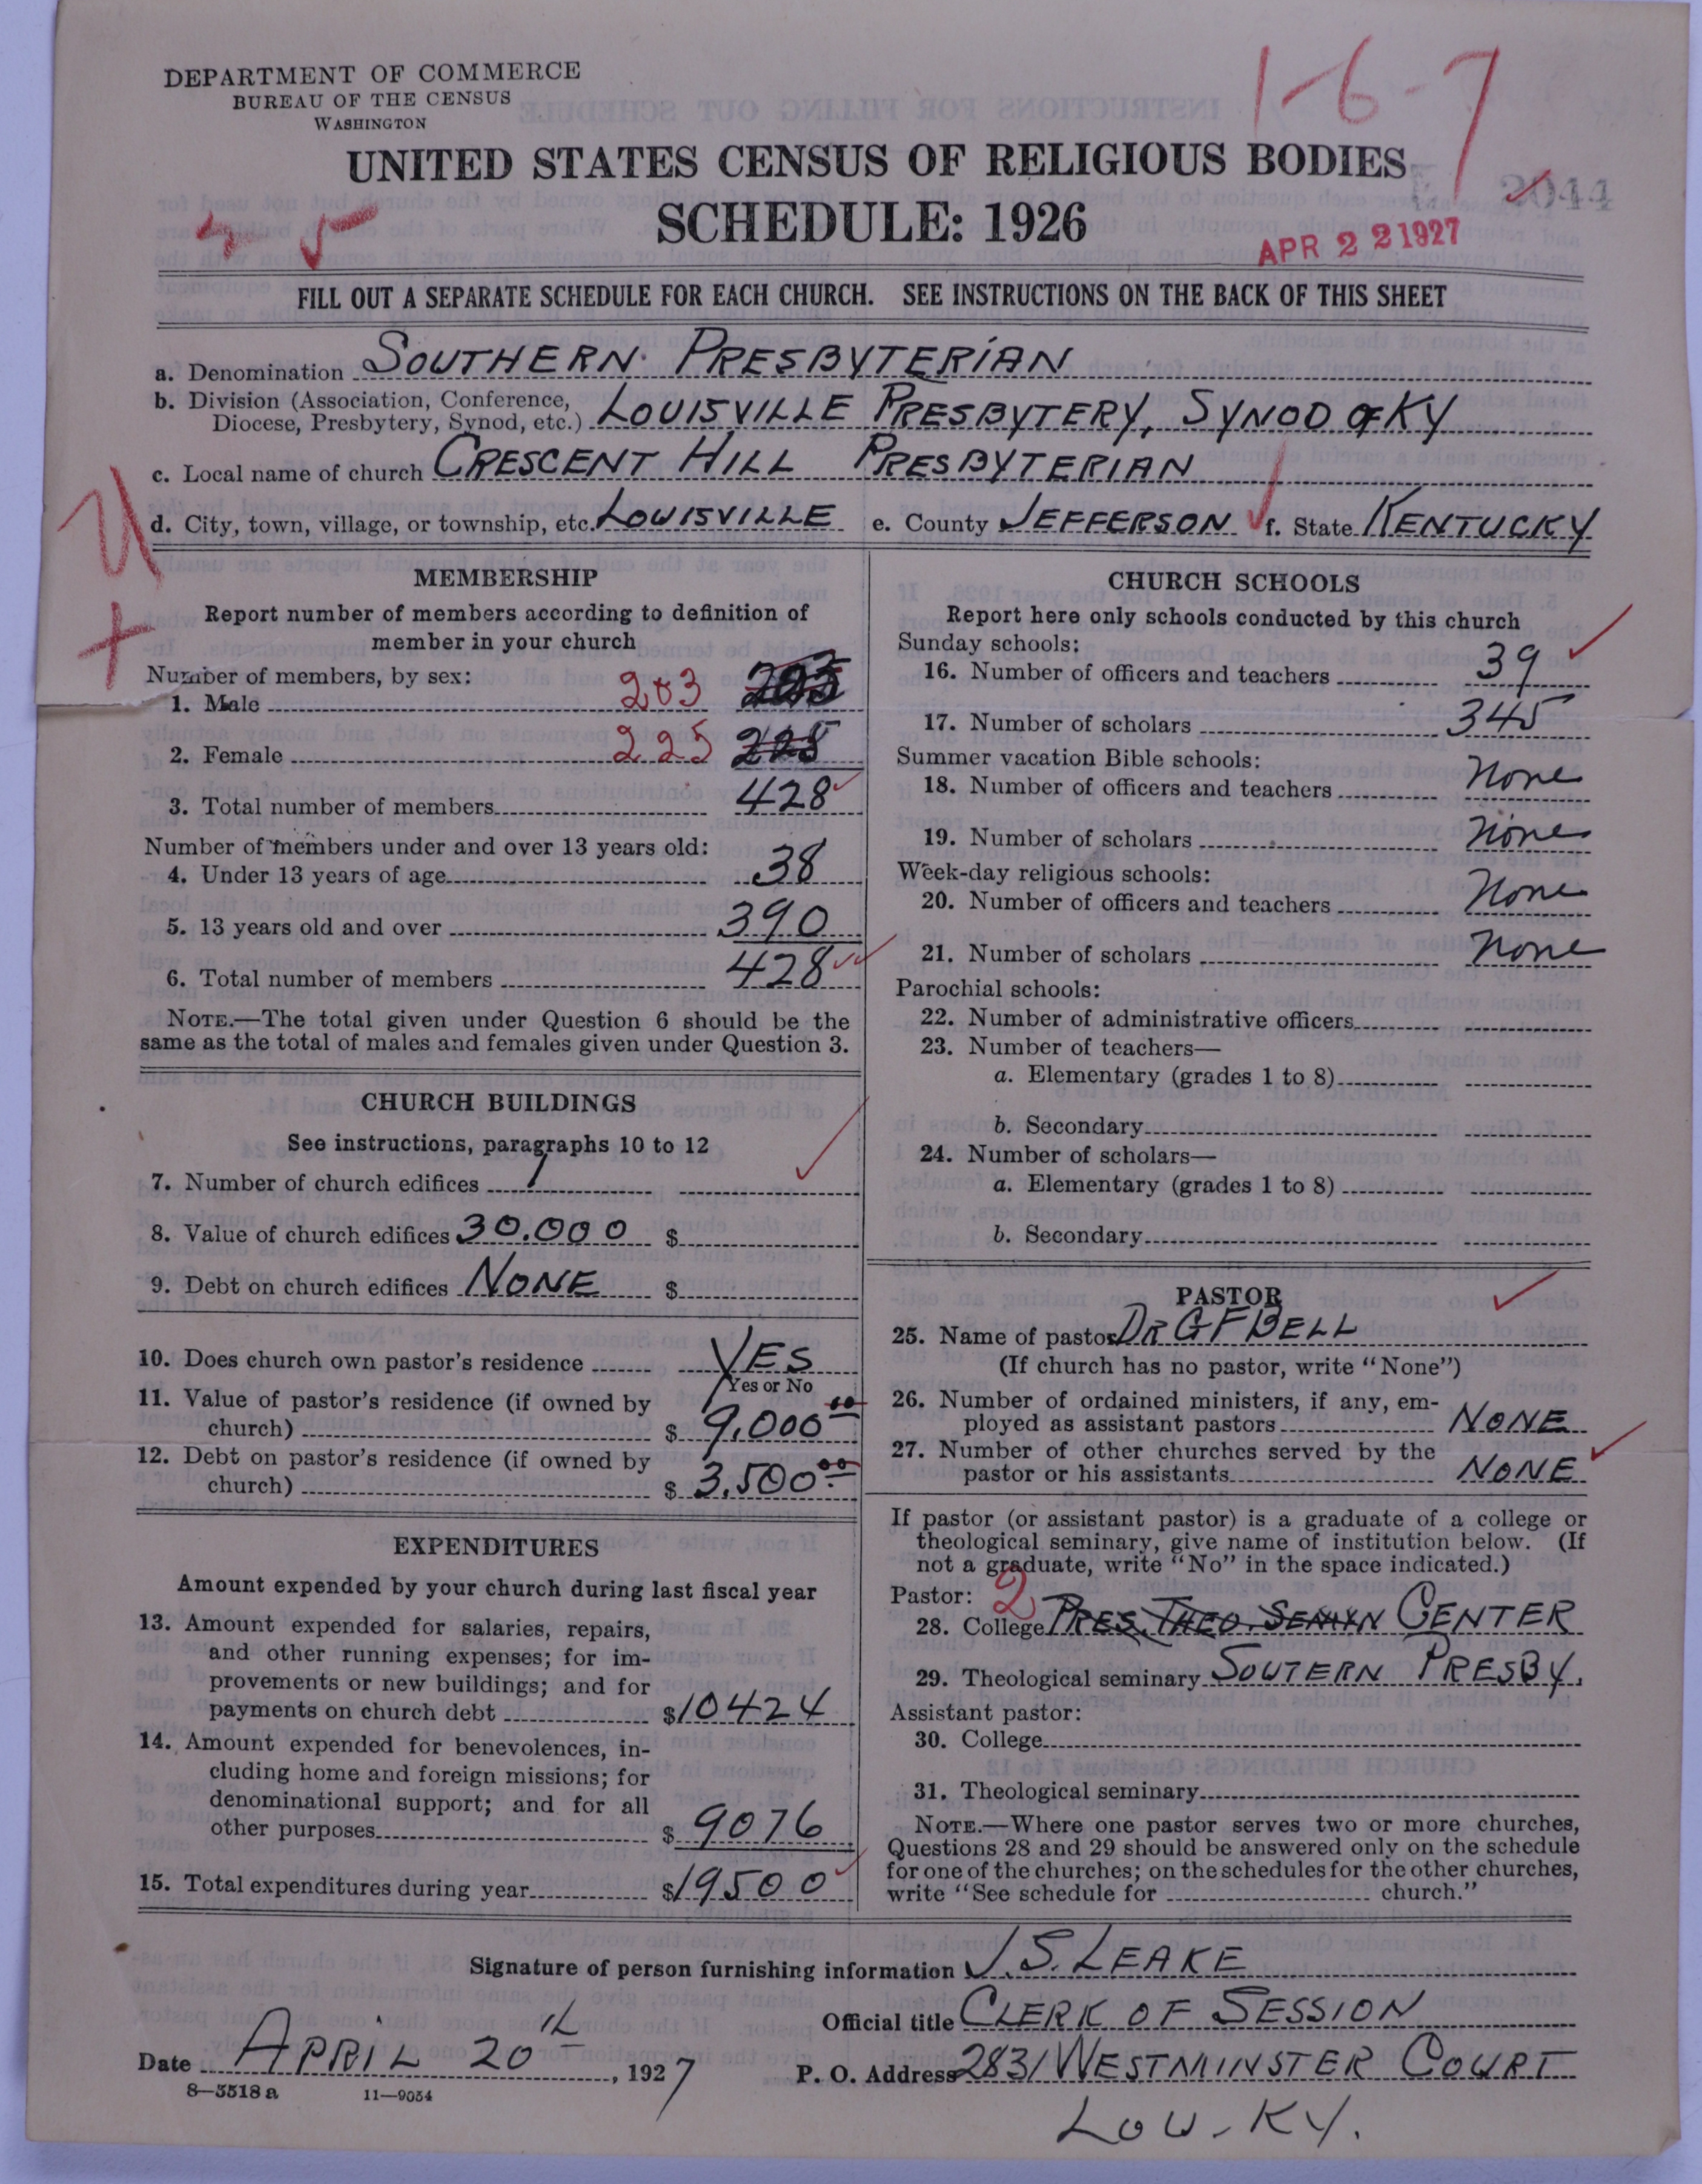 DEPARTMENT OF COMMERCE
BUREAU OF THE CENSUS
WASHINGTON
1-6-7
UNITED STATES CENSUS OF RELIGIOUS BODIES
SCHEDULE: 1926
2044
APR 22 1927
FILL OUT A SEPARATE SCHEDULE FOR EACH CHURCH. SEE INSTRUCTIONS ON THE BACK OF THIS SHEET
a. Denomination SOUTHERN PRESBYTERIAN
b. Division (Association, Conference,
Diocese, Presbytery, Synod, etc.) LOUISVILLE PRESBYTERY, SYNOD OF KY
c. Local name of church CRESCENT HILL PRESBYTERIAN
d. City, town, village, or township, etc. LOUISVILLE e. County JEFFERSON f. State KENTUCKY
MEMBERSHIP
Report number of members according to definition of
member in your church
Number of members, by sex:
1. Male 203
2. Female 225
3. Total number of members 428
Number of members under and over 13 years old:
4. Under 13 years of age 38
5. 13 years old and over 390
6. Total number of members 428
NOTE.—The total given under Question 6 should be the
same as the total of males and females given under Question 3.
CHURCH BUILDINGS
See instructions, paragraphs 10 to 12
7. Number of church edifices 1
8. Value of church edifices 30.000 $
9. Debt on church edifices NONE $
10. Does church own pastor's residence YES
Yes or No
11. Value of pastor's residence (if owned by
church) $ 9,000 00
12. Debt on pastor's residence (if owned by
church) $ 3,500 00
EXPENDITURES
Amount expended by your church during last fiscal year
13. Amount expended for salaries, repairs,
and other running expenses; for im-
provements or new buildings; and for
payments on church debt $10424
14. Amount expended for benevolences, in-
cluding home and foreign missions; for
denominational support; and for all
other purposes $ 9076
15. Total expenditures during year $19500
CHURCH SCHOOLS
Report here only schools conducted by this church
Sunday schools:
16. Number of officers and teachers 39
17. Number of scholars 345
Summer vacation Bible schools:
18. Number of officers and teachers None
19. Number of scholars None
Week-day religious schools:
20. Number of officers and teachers None
21. Number of scholars None
Parochial schools:
22. Number of administrative officers
23. Number of teachers—
a. Elementary (grades 1 to 8)
b. Secondary
24. Number of scholars—
a. Elementary (grades 1 to 8)
b. Secondary
PASTOR
25. Name of pastor DR G F BELL
(If church has no pastor, write "None")
26. Number of ordained ministers, if any, em-
ployed as assistant pastors NONE
27. Number of other churches served by the
pastor or his assistants NONE
If pastor (or assistant pastor) is a graduate of a college or
theological seminary, give name of institution below. (If
not a graduate, write "No" in the space indicated.)
Pastor: 2
28. College PRES. THEO. SEMIN CENTER
29. Theological seminary SOUTERN PRESBY.
Assistant pastor:
30. College
31. Theological seminary
NOTE.—Where one pastor serves two or more churches,
Questions 28 and 29 should be answered only on the schedule
for one of the churches; on the schedules for the other churches,
write "See schedule for church."
Signature of person furnishing information J. S. LEAKE
Official title CLERK OF SESSION
Date APRIL 20th, 1927 P. O. Address 2831 WESTMINSTER COURT
8—5518 a 11—9054
LOU-KY.